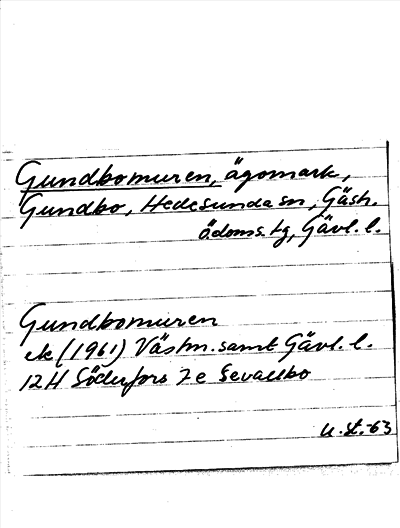 Gundbomuren, ägomark,
Gundbo, Hedesunda sn, Gästr.
ådoms.tg, Gävl.l.
Gundbomuren
ek (1961) Västm. samt Gävl. l.
12H Söderfors 7e Sevallbo
U.St.-63